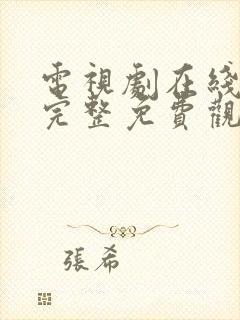 電視劇在綫
完整免費觀
張希